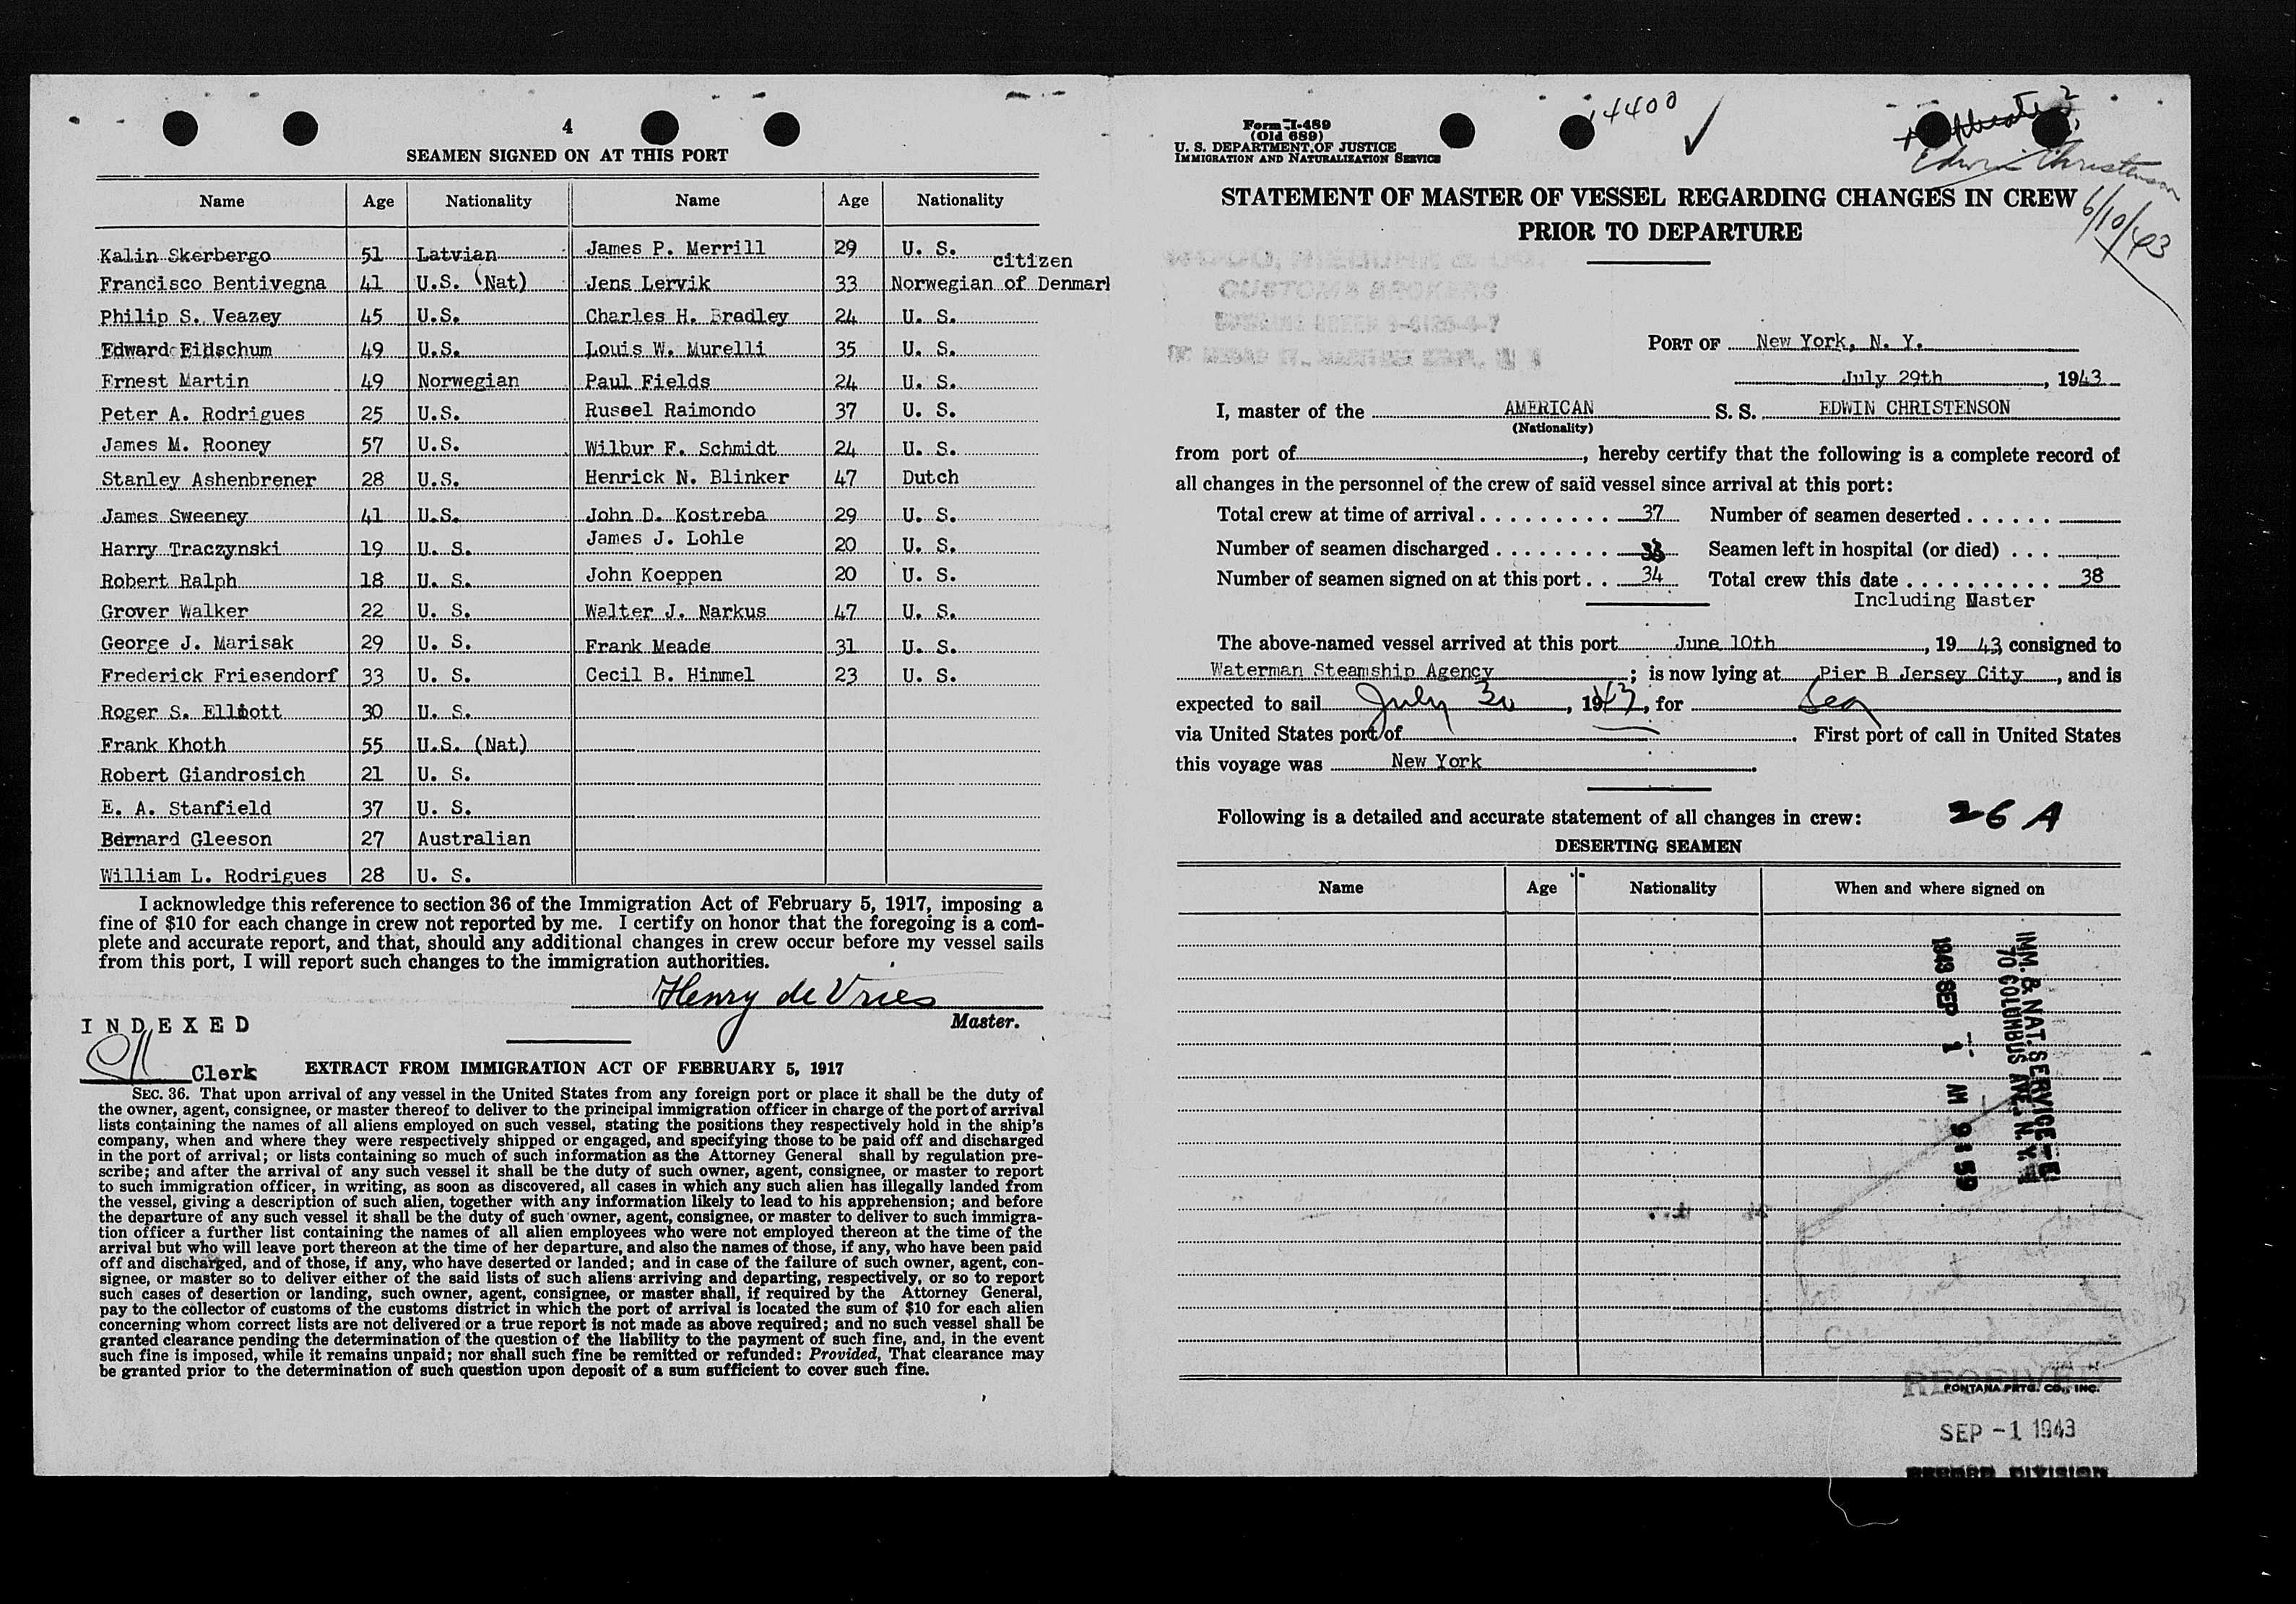 4
SEAMEN SIGNED ON AT THIS PORT
Name Age Nationality Name Age Nationality
Kalin Skerbergo 51 Latvian James P. Merrill 29 U. S.
citizen
Francisco Bentivegna 41 U.S. (Nat) Jens Lervik 33 Norwegian of Denmar
Philip S. Veazey 45 U.S. Charles H. Bradley 24 U. S.
Edward Eidschum 49 U.S. Louis W. Murelli 35 U. S.
Ernest Martin 49 Norwegian Paul Fields 24 U. S.
Peter A. Rodrigues 25 U.S. Russel Raimondo 37 U. S.
James M. Rooney 57 U.S. Wilbur F. Schmidt 24 U. S.
Stanley Ashenbrener 28 U.S. Henrick N. Blinker 47 Dutch
James Sweeney 41 U.S. John D. Kostreba 29 U. S.
Harry Traczynski 19 U. S. James J. Lohle 20 U. S.
Robert Ralph 18 U. S. John Koeppen 20 U. S.
Grover Walker 22 U. S. Walter J. Narkus 47 U. S.
George J. Marisak 29 U. S. Frank Meade 31 U. S.
Frederick Friesendorf 33 U. S. Cecil B. Himmel 23 U. S.
Roger S. Elliott 30 U. S.
Frank Khoth 55 U.S. (Nat)
Robert Giandrosich 21 U. S.
E. A. Stanfield 37 U. S.
Bernard Gleeson 27 Australian
William L. Rodrigues 28 U. S.
I acknowledge this reference to section 36 of the Immigration Act of February 5, 1917, imposing a
fine of $10 for each change in crew not reported by me. I certify on honor that the foregoing is a com-
plete and accurate report, and that, should any additional changes in crew occur before my vessel sails
from this port, I will report such changes to the immigration authorities.
Henry de Vries
Master.
INDEXED
Clerk
EXTRACT FROM IMMIGRATION ACT OF FEBRUARY 5, 1917
SEC. 36. That upon arrival of any vessel in the United States from any foreign port or place it shall be the duty of
the owner, agent, consignee, or master thereof to deliver to the principal immigration officer in charge of the port of arrival
lists containing the names of all aliens employed on such vessel, stating the positions they respectively hold in the ship's
company, when and where they were respectively shipped or engaged, and specifying those to be paid off and discharged
in the port of arrival; or lists containing so much of such information as the Attorney General shall by regulation pre-
scribe; and after the arrival of any such vessel it shall be the duty of such owner, agent, consignee, or master to report
to such immigration officer, in writing, as soon as discovered, all cases in which any such alien has illegally landed from
the vessel, giving a description of such alien, together with any information likely to lead to his apprehension; and before
the departure of any such vessel it shall be the duty of such owner, agent, consignee, or master to deliver to such immigra-
tion officer a further list containing the names of all alien employees who were not employed thereon at the time of the
arrival but who will leave port thereon at the time of her departure, and also the names of those, if any, who have been paid
off and discharged, and of those, if any, who have deserted or landed; and in case of the failure of such owner, agent, con-
signee, or master so to deliver either of the said lists of such aliens arriving and departing, respectively, or so to report
such cases of desertion or landing, such owner, agent, consignee, or master shall, if required by the Attorney General,
pay to the collector of customs of the customs district in which the port of arrival is located the sum of $10 for each alien
concerning whom correct lists are not delivered or a true report is not made as above required; and no such vessel shall be
granted clearance pending the determination of the question of the liability to the payment of such fine, and, in the event
such fine is imposed, while it remains unpaid; nor shall such fine be remitted or refunded: Provided, That clearance may
be granted prior to the determination of such question upon deposit of a sum sufficient to cover such fine.
Form I-489
(Old 689)
U. S. DEPARTMENT OF JUSTICE
IMMIGRATION AND NATURALIZATION SERVICE
14400
Edwin Christenson
6/10/43
STATEMENT OF MASTER OF VESSEL REGARDING CHANGES IN CREW
PRIOR TO DEPARTURE
CUSTOMS BROKERS
PORT OF New York, N. Y.
July 29th, 1943
I, master of the AMERICAN S. S. EDWIN CHRISTENSON
(Nationality)
from port of , hereby certify that the following is a complete record of
all changes in the personnel of the crew of said vessel since arrival at this port:
Total crew at time of arrival 37 Number of seamen deserted
Number of seamen discharged 33 Seamen left in hospital (or died)
Number of seamen signed on at this port 34 Total crew this date 38
Including Master
The above-named vessel arrived at this port June 10th, 19 43 consigned to
Waterman Steamship Agency; is now lying at Pier B Jersey City, and is
expected to sail July 30, 1943, for Sea
via United States port of . First port of call in United States
this voyage was New York.
Following is a detailed and accurate statement of all changes in crew: 26 A
DESERTING SEAMEN
Name Age Nationality When and where signed on
IMM. & NAT. SERVICE-EI
70 COLUMBUS AVE., N.Y.
1943 SEP 1 AM 9 59
RECEIVED
FONTANA PRTG. CO., INC.
SEP -1 1943
RECORD DIVISION